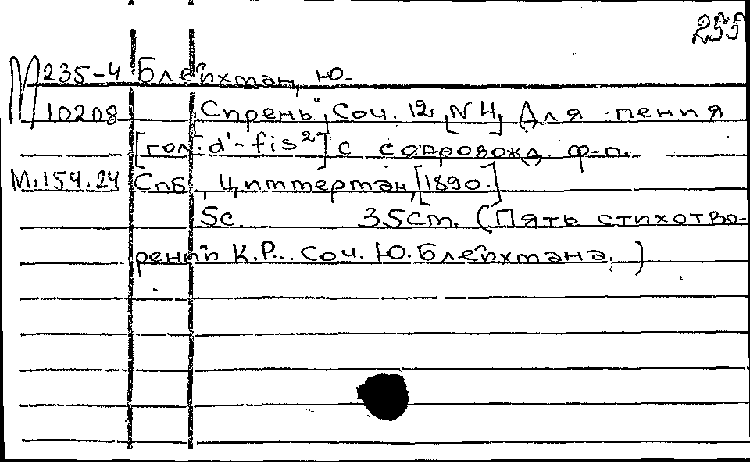 255
М 235-4 Блейхман, Ю.
10208 "Сирень", Соч. 12, [N 4] Для пения
[гол.: d'-fis²] с сопровожд. ф-п.
М.154.24 Спб., Циммерман, [1890.]
5с. 35cm. (Пять стихотво-
рений К.Р.. Соч. Ю. Блейхмана.)